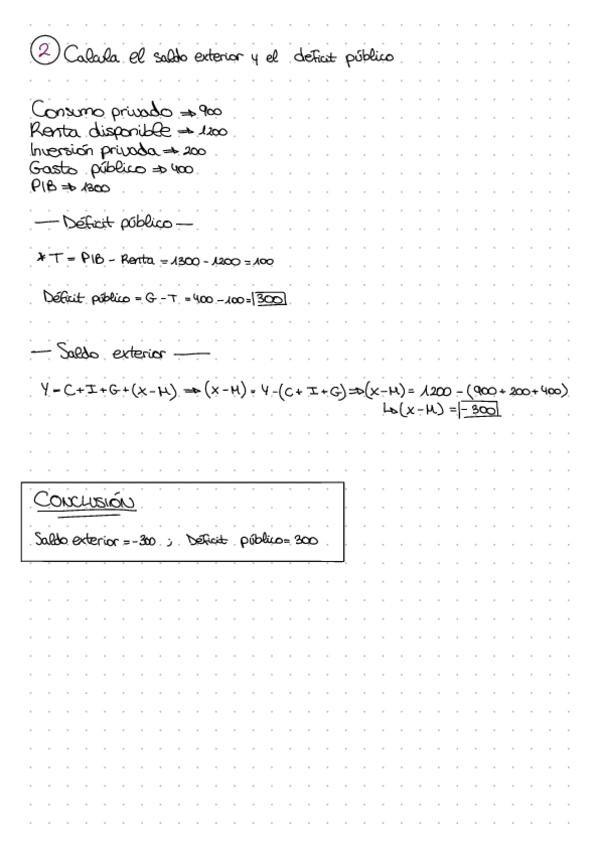 2 Calcula el saldo exterior y el deficit público
Consumo privado ⇒ 900
Renta disponible ⇒ 1200
Inversión privada ⇒ 200
Gasto público ⇒ 400
PIB ⇒ 1300
— Déficit público —
* T = PIB - Renta = 1300 - 1200 = 100
Déficit público = G - T = 400 - 100 = 300
— Saldo exterior —
Y = C + I + G + (X - M) ⇒ (X - M) = Y - (C + I + G) ⇒ (X - M) = 1200 - (900 + 200 + 400)
↳ (X - M) = -300
CONCLUSIÓN
Saldo exterior = -300 ; Déficit público = 300